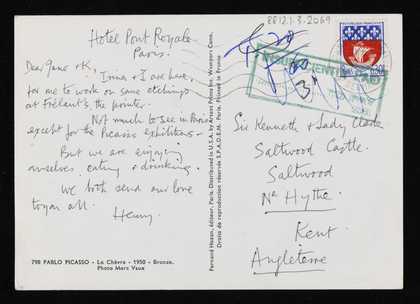 8812.1.3.2069
Hotel Pont Royale
Paris.
Dear Jane + K,
Irina + I are here,
for me to work on some etchings
at Frélaut's, the printer.
Not much to see in Paris
except for the Picasso exhibition -
But we are enjoying
ourselves, eating + drinking.
We both send our love
to you all.
Henry
798 PABLO PICASSO - La Chèvre - 1950 - Bronze.
Photo Marc Vaux
Fernand Hazan, éditeur, Paris. Distributed in U.S.A. by Artext Prints Inc. Westport Conn.
Droits de reproduction réservés S.P.A.D.E.M. Paris. Printed in France
Sir Kenneth + Lady Clark
Saltwood Castle.
Saltwood
Nr Hythe.
Kent.
Angleterre